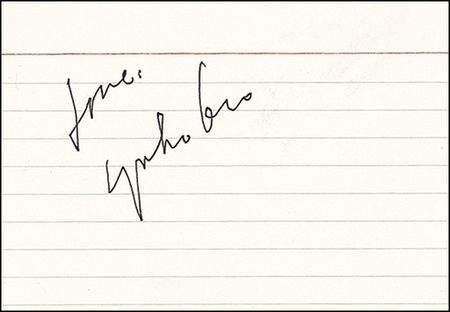 love,
yoko ono